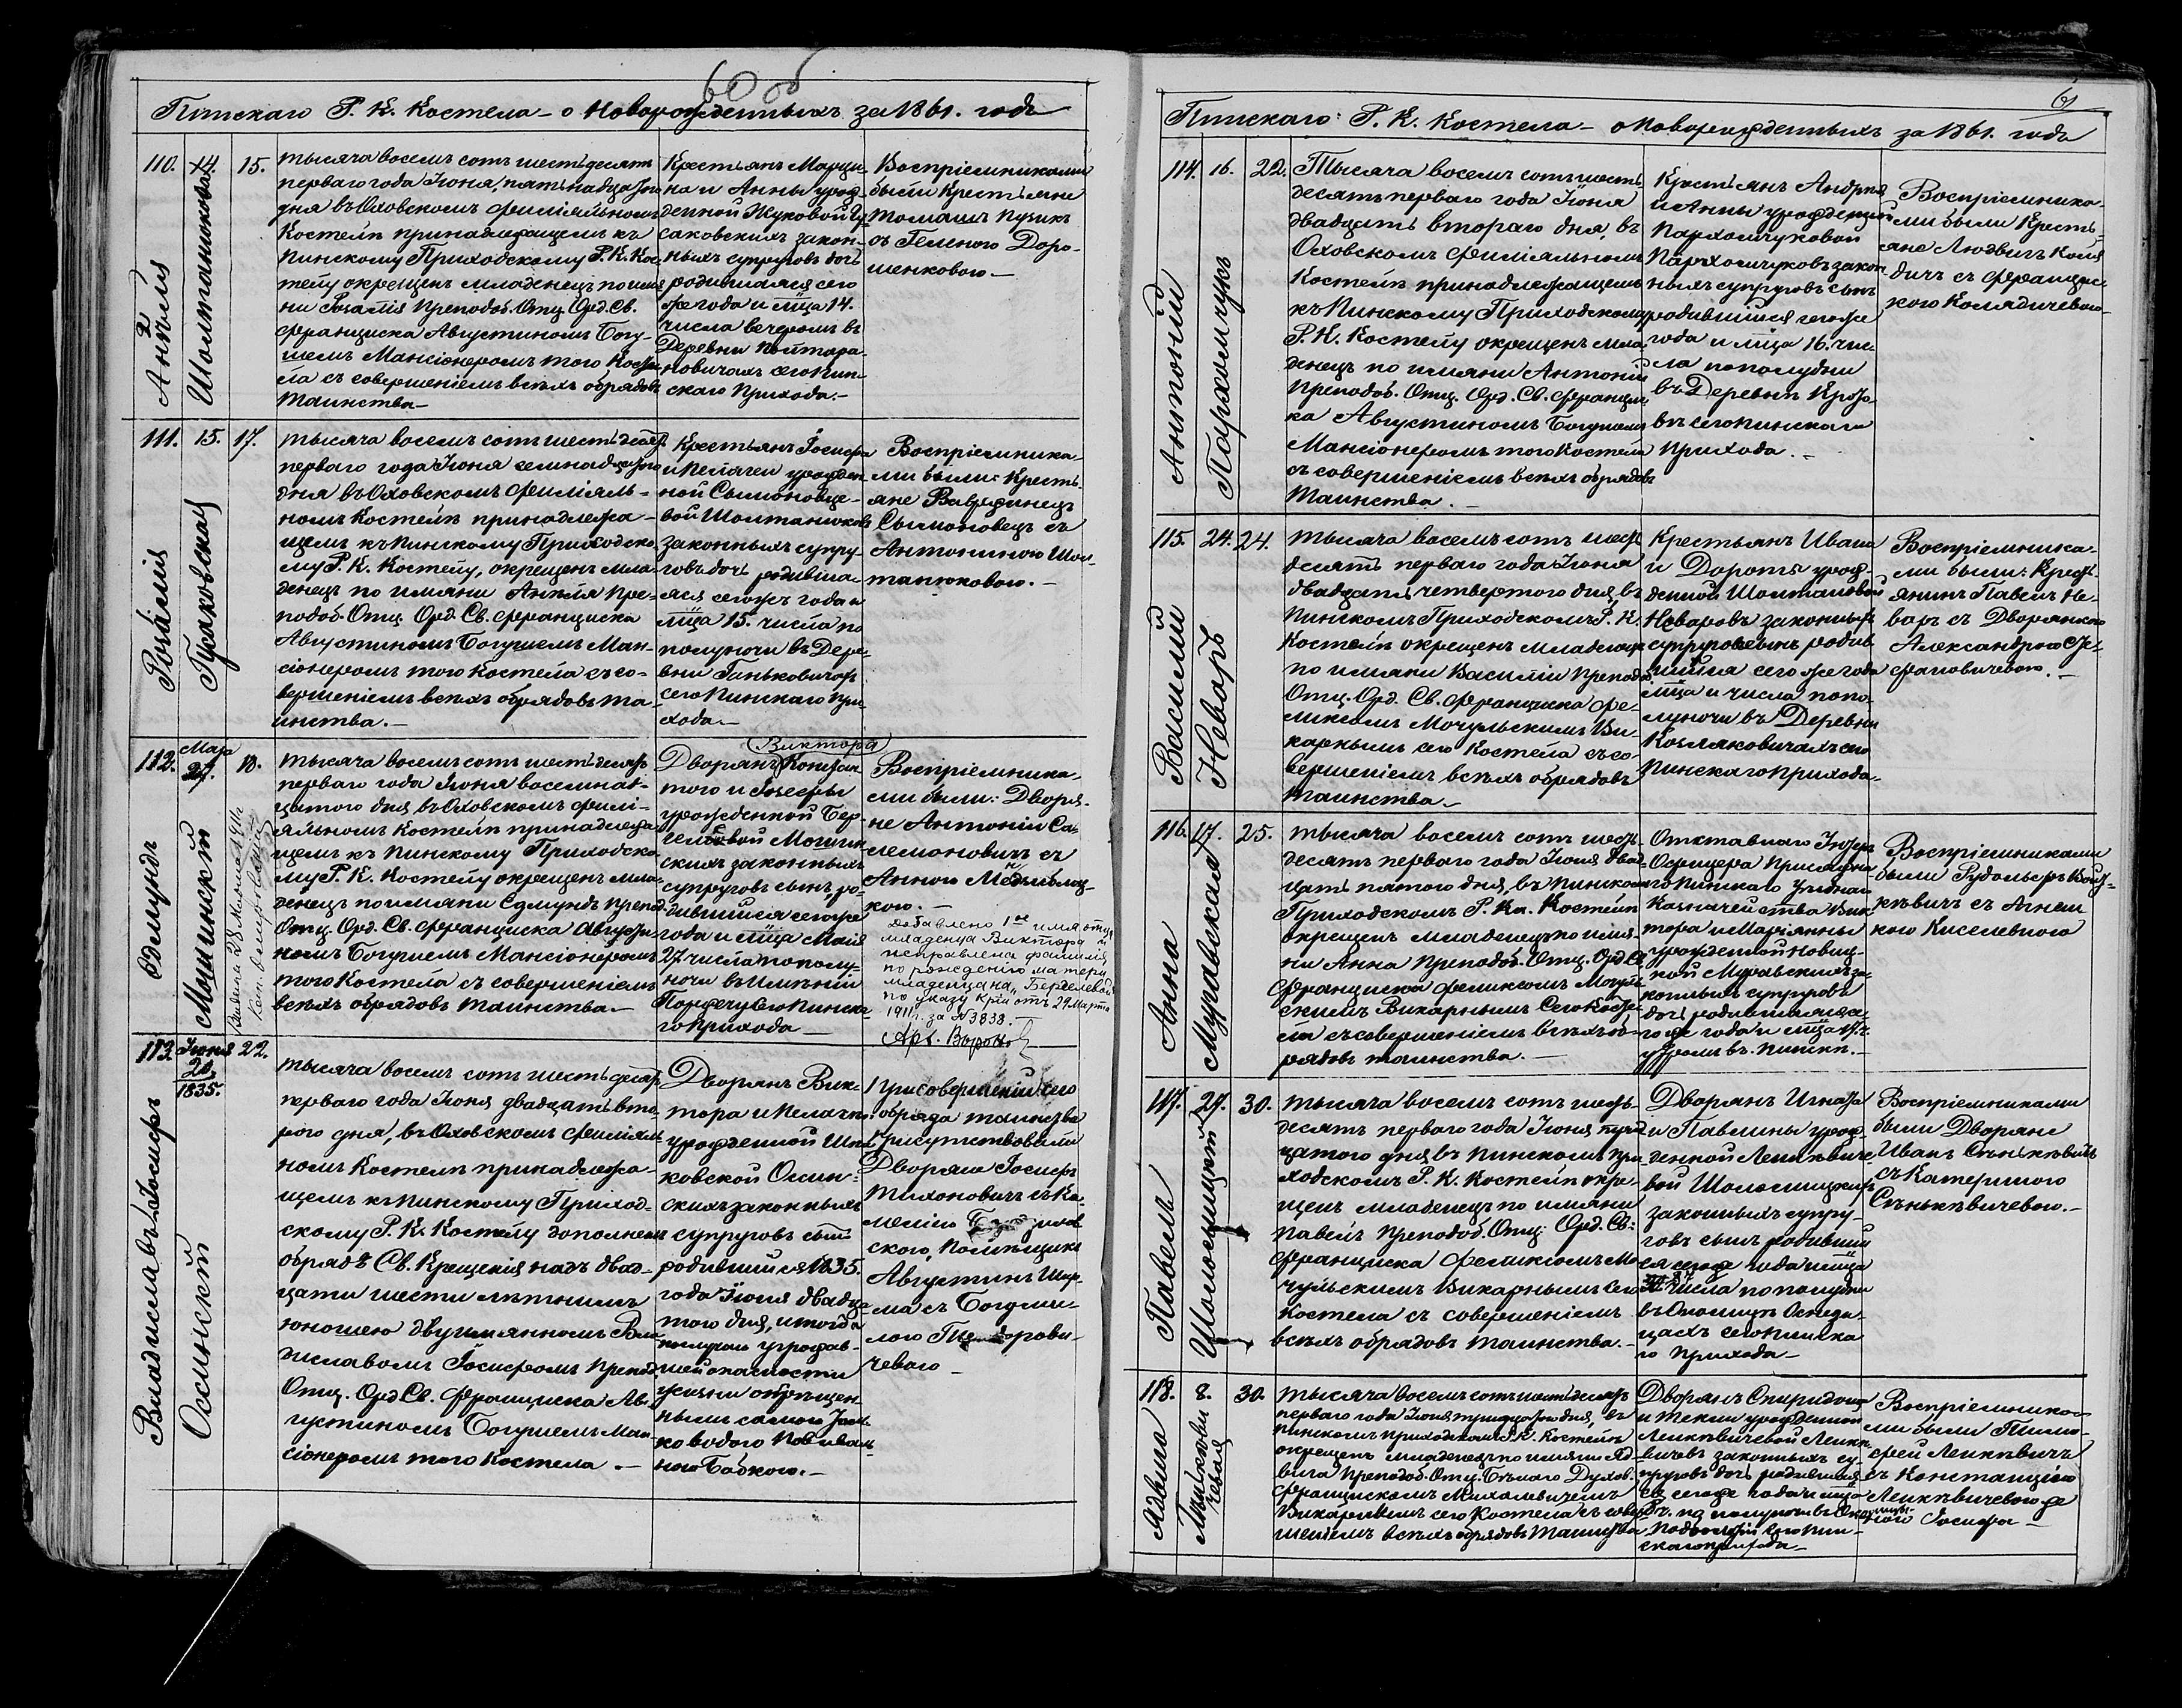 60 об
Пинскаго Р. К. Костела – о Новорожденныхъ за 1861. годъ
110. 14. 15.
Анѣля
Шолтанюкова
тысяча восемь сотъ шестьдесятъ
перваго года Іюня, пятнадцатого
дня въ Оховскомъ филіяльномъ
Костелѣ принадлежащемъ къ
Пинскому Приходскому Р. К. Кос-
телу окрещенъ младенецъ по имя-
ни Розалія Преподоб. Отц. Орд. Св.
Франциска Августиномъ Богу-
шемъ Мансіонеромъ того Косте-
ла съ совершеніемъ всѣхъ обрядовъ
таинства –
Крестьянъ Марци-
на и Анны урож-
денной Жуковой Гу-
саковскихъ закон-
ныхъ супруговъ дочь
родившаяся сего
же года и мца 14.
числа вечеромъ въ
Деревни Полтора-
новичахъ сего Пин-
скаго Прихода. –
Воспріемниками
были Крестьяне
Томашъ Пузикъ
съ Геленою Доро-
шенковою –
111. 15. 17.
Розалія
Гусаковская
тысяча восемь сотъ шестьдесятъ
перваго года Іюня семнадцатого
дня въ Оховскомъ филіяль-
номъ Костелѣ принадлежа-
щемъ къ Пинскому Приходско-
му Р. К. Костелу, окрещенъ мла-
денецъ по имяни Анѣля Пре-
подоб. Отц. Орд. Св. Франциска
Августиномъ Богушемъ Ман-
сіонеромъ того Костела съ со-
вершеніемъ всѣхъ обрядовъ та-
инства. –
Крестьянъ Іосифа
и Пелагеи урожден-
ной Сымоновце-
вой Шолтанюковъ
законныхъ супру-
говъ дочь родивша-
яся сегожъ года и
мца 15. числа по
полуночи въ Дере-
вни Ганьковичахъ
сего Пинскаго При-
хода –
Воспріемника-
ми были: Кресть-
яне Вавржинецъ
Сымоновецъ съ
Антониною Шол-
танюковою. –
112. Мая 27. 18.
Эдмундъ
Мошинскій
Тысяча восемь сотъ шестьдесятъ
перваго года Іюня восемнад-
цатого дня въ Оховскомъ фили-
яльномъ Костелѣ принадлежа-
щемъ къ Пинскому Приходско-
му Р. К. Костелу окрещенъ мла-
денецъ по имяни Эдмундъ Препод.
Отц. Орд. Св. Франциска Августи-
номъ Богушемъ Мансіонеромъ
того Костела съ совершеніемъ
всѣхъ обрядовъ таинства. –
Виктора
Дворянъ
того и Іозефы
урожденной Бер-
вой Мошин-
скихъ законныхъ
супруговъ сынъ, ро-
дившійся сегоже
года и мца Мая
27 числа по полу-
ночи въ Имѣніи
сего Пинска-
го Прихода –
Воспріемника-
ми были: Дворя-
не Антоній Са-
лемоновичъ съ
Анною
кою. –
Добавлено 1ое имя отца
младенца Виктора и
исправлена фамилія
по рожденію матери
младенца на „
по указу К-ріи отъ 29 Марта
1911 г. за № 3838. –
113. Іюня 20. 1835. 22.
Владиславъ-Іосифъ
Осинскій
тысяча восемь сотъ шестьдесятъ
перваго года Іюня двадцать вто-
рого дня, въ Оховскомъ филіяль-
номъ Костелѣ принадлежа-
щемъ къ Пинскому Приход-
скому Р. К. Костелу дополненъ
обрядъ Св. Крещенія надъ двад-
цати шести лѣтнимъ
юношею двуимяннымъ Вла-
диславомъ Іосифомъ Препод.
Отц. Орд. Св. Франциска Ав-
густиномъ Богушемъ Ман-
сіонеромъ того Костела. –
Дворянъ Вик-
тора и Пелагіи
урожденной
ковской Осин-
скихъ законныхъ
супруговъ сынъ
родившійся 1835.
года Іюня двадца-
того дня, и тогда
по случаю угрожав-
шей опасности
жизни окрещен-
ный самою толь-
ко водою повиваль-
ною Бабкою. –
При совершеніи сего
обряда таинства
присутствовали
Дворяне Іосифъ
Тихоновичъ съ Ка-
милію
скою, Помѣщикъ
Августинъ Шир-
ма съ Богуми-
лою
чевою –
61
Пинскаго Р. К. Костела – о Новорожденныхъ за 1861. годъ
114. 16. 22.
Антоній
Пархомчукъ
Тысяча восемь сотъ шесть-
десятъ перваго года Іюня
двадцать второго дня, въ
Оховскомъ филіяльномъ
Костелѣ принадлежащемъ
къ Пинскому Приходскому
Р. К. Костелу окрещенъ мла-
денецъ по имяни Антоній
Преподоб. Отц. Орд. Св. Францис-
ка Августиномъ Богушемъ
Мансіонеромъ того Костела
съ совершеніемъ всѣхъ обрядовъ
Таинства. –
Крестьянъ Андрея
и Анны урожденной
Пархомчуковой
Пархомчуковъ закон-
ныхъ супруговъ сынъ
родившійся сегоже
года и мца 16. чис-
ла пополудни
въ Деревни
въ сего Пинскаго
Прихода. –
Воспріемника-
ми были Кресть-
яне Людвигъ Коля-
дичъ съ Францис-
кою Колядичевою –
115. 24. 24.
Василій
Неваръ
тысяча восемь сотъ шесть-
десятъ перваго года Іюня
двадцать четвертого дня, въ
Пинскомъ Приходскомъ Р. К.
Костелѣ окрещенъ младенецъ
по имяни Василій Преподоб.
Отц. Орд. Св. Франциска Фе-
ликсомъ Мочульскимъ Ви-
карнымъ сего Костела съ со-
вершеніемъ всѣхъ обрядовъ
таинства. –
Крестьянъ Ивана
и Дороты урож-
денной
Неваровъ законныхъ
супруговъ сынъ родив-
шійся сего же года
мца и числа попо-
луночи въ Деревни
Козляковичахъ сего
Пинскаго Прихода –
Воспріемника-
ми были: Кресть-
янинъ Павелъ Не-
варъ съ Дворянкою
Александрою
фановичевою. –
116. 17. 25.
Анна
Муравская
тысяча восемь сотъ шесть-
десятъ перваго года Іюня двад-
цать пятого дня, въ Пинскомъ
Приходскомъ Р. Ка. Костелѣ
окрещенъ младенецъ по имя-
ни Анна Преподоб. Отц. Орд. Св.
Франциска Феликсомъ Мочуль-
скимъ Викарнымъ сего Косте-
ла съ совершеніемъ всѣхъ об-
рядовъ таинства. –
Отставнаго Унтеръ
Офицера Присяжна-
го Пинскаго Уѣзднаго
Казначейства Вик-
тора и Маріянны
урожденной Новиц-
кой Муравскихъ за-
конныхъ супруговъ
дочь родившаяся се-
го же года и мца 17. ч.
утромъ въ Пинскѣ. –
Воспріемниками
были Рудольфъ
кѣвичъ съ Агнеш-
кою Киселевною
117. 27. 30.
Павелъ
Шоломицкій
тысяча восемь сотъ шесть-
десятъ перваго года Іюня трид-
цатого дня въ Пинскомъ При-
ходскомъ Р. К. Костелѣ окре-
щенъ младенецъ по имяни
Павелъ Преподоб. Отц. Орд. Св.
Франциска Феликсомъ Мо-
чульскимъ Викарнымъ сего
Костела съ совершеніемъ
всѣхъ обрядовъ таинства. –
Дворянъ Игнатія
и Павлины урож-
денной Ленкѣвиче-
вой Шоломицкихъ
законныхъ супру-
говъ сынъ родивший-
ся сегоже года и мца
27 числа по полудни
въ
цахъ сего Пинска-
го Прихода –
Воспріемниками
были Дворяне
Иванъ Сѣнькѣвичъ
съ Катериною
Сѣнькѣвичевою. –
118. 8. 30.
Ядвига
Ленкѣви-
чевая
тысяча восемь сотъ шестьдесятъ
перваго года Іюня тридцатого дня, въ
Пинскомъ Приходскомъ Р. К. Костелѣ
окрещенъ младенецъ по имяни Яд-
вига Преподоб. Отц. Бѣлаго Духов.
Францискомъ Михалевичемъ
Викарнымъ сего Костела съ совер-
шеніемъ всѣхъ обрядовъ Таинства
Дворянъ Спиридона
и Теклы урожденной
Ленкѣвичевой Ленкѣ-
вичевъ законныхъ су-
пруговъ дочь родившая-
ся сегоже года и мца
8 ч. по полуночи въ
сего Пин-
скаго прихода –
Воспріемника-
ми были Тимо-
фей Ленкѣвичъ
съ Констанцією
Ленкѣвичевою
Іосифа –